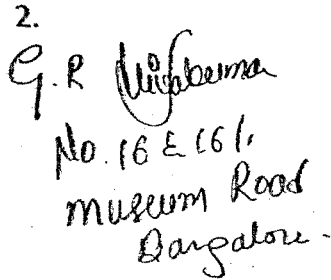 2.
G. R
No. 16 & 16/1,
Museum Road
Bangalore.